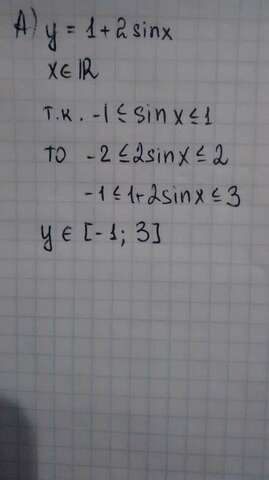 А) y = 1 + 2 sinx
x ∈ ℝ
т.к. -1 ≤ sin x ≤ 1
то -2 ≤ 2sinx ≤ 2
-1 ≤ 1+2sinx ≤ 3
y ∈ [-1; 3]